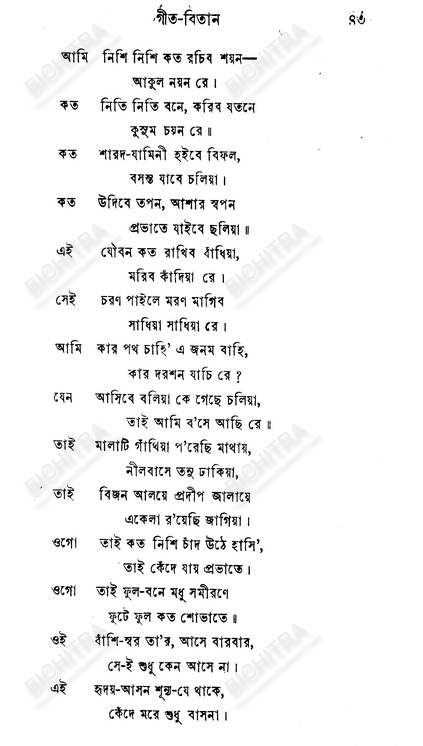 গীত-বিতান ৪৩
আমি নিশি নিশি কত রচিব শয়ন—
আকুল নয়ন রে ।
কত নিতি নিতি বনে, করিব যতনে
কুসুম চয়ন রে ॥
কত শারদ-যামিনী হইবে বিফল,
বসন্ত যাবে চলিয়া ।
কত উদিবে তপন, আশার স্বপন
প্রভাতে যাইবে ছলিয়া ॥
এই যৌবন কত রাখিব বাঁধিয়া,
মরিব কাঁদিয়া রে ।
সেই চরণ পাইলে মরণ মাগিব
সাধিয়া সাধিয়া রে ।
আমি কার পথ চাহি' এ জনম বাহি,
কার দরশন যাচি রে ?
যেন আসিবে বলিয়া কে গেছে চলিয়া,
তাই আমি ব'সে আছি রে ॥
তাই মালাটি গাঁথিয়া প'রেছি মাথায়,
নীলবাসে তনু ঢাকিয়া,
তাই বিজন আলয়ে প্রদীপ জালায়ে
একেলা র'য়েছি জাগিয়া ।
ওগো তাই কত নিশি চাঁদ উঠে হাসি',
তাই কেঁদে যায় প্রভাতে ।
ওগো তাই ফুল-বনে মধু সমীরণে
ফুটে ফুল কত শোভাতে ॥
ওই বাঁশি-স্বর তা'র, আসে বারবার,
সে-ই শুধু কেন আসে না ।
এই হৃদয়-আসন শূন্য-যে থাকে,
কেঁদে মরে শুধু বাসনা ।
BICHITRA